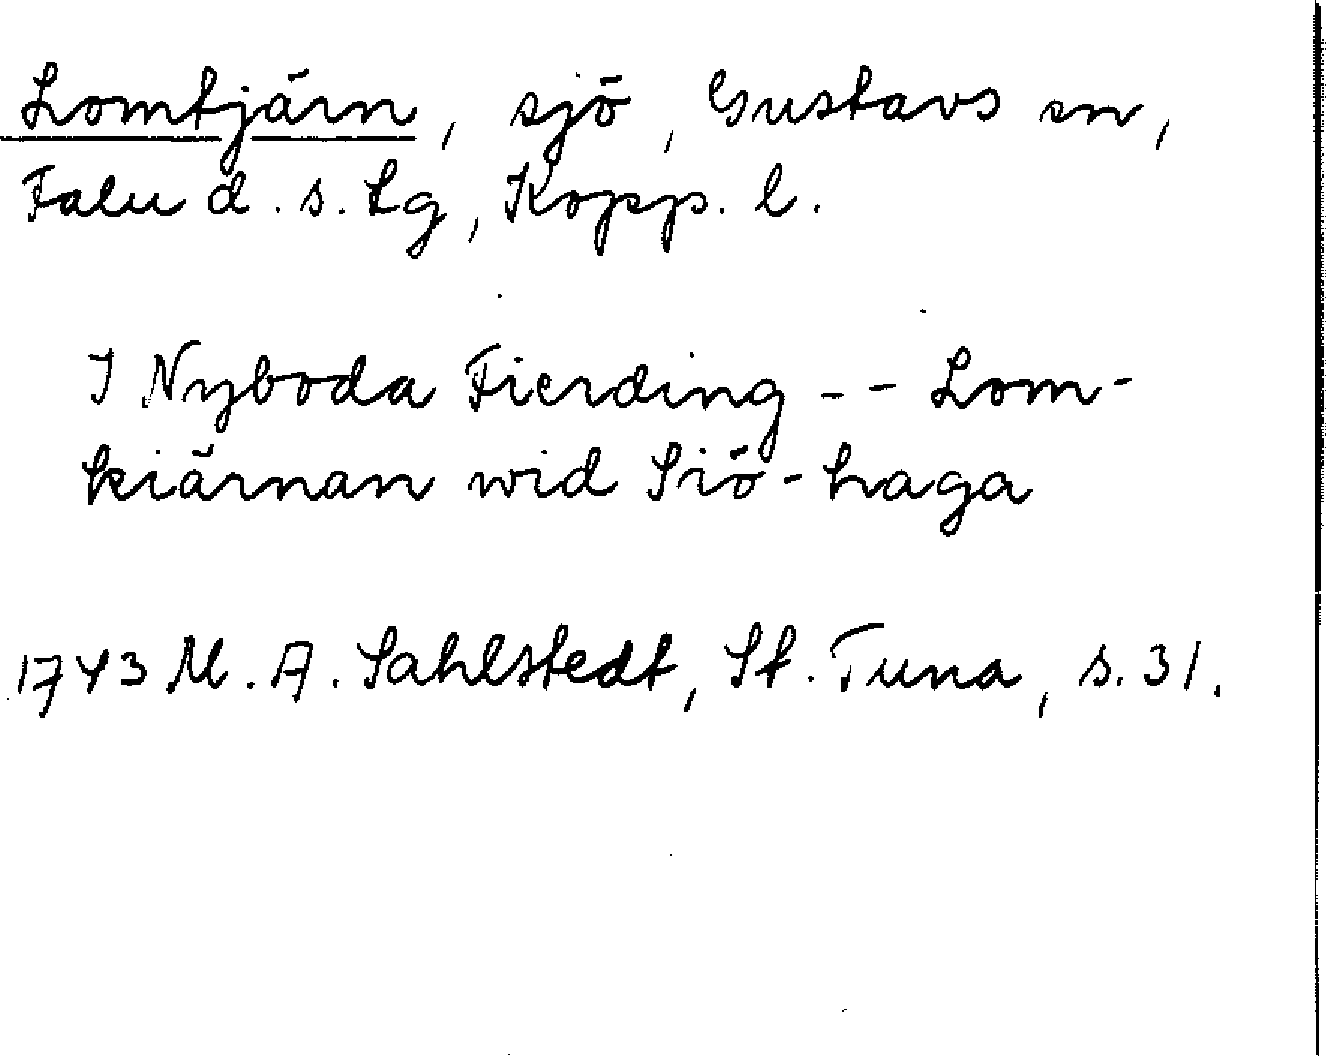 Lomtjärn, sjö, Gustavs sn,
Falu d. s. tg, Kopp. l.
I Nyboda Fierding - - Lom-
kiärnan wid Siö-haga
1743 M. A. Sahlstedt, St. Tuna, s. 31.